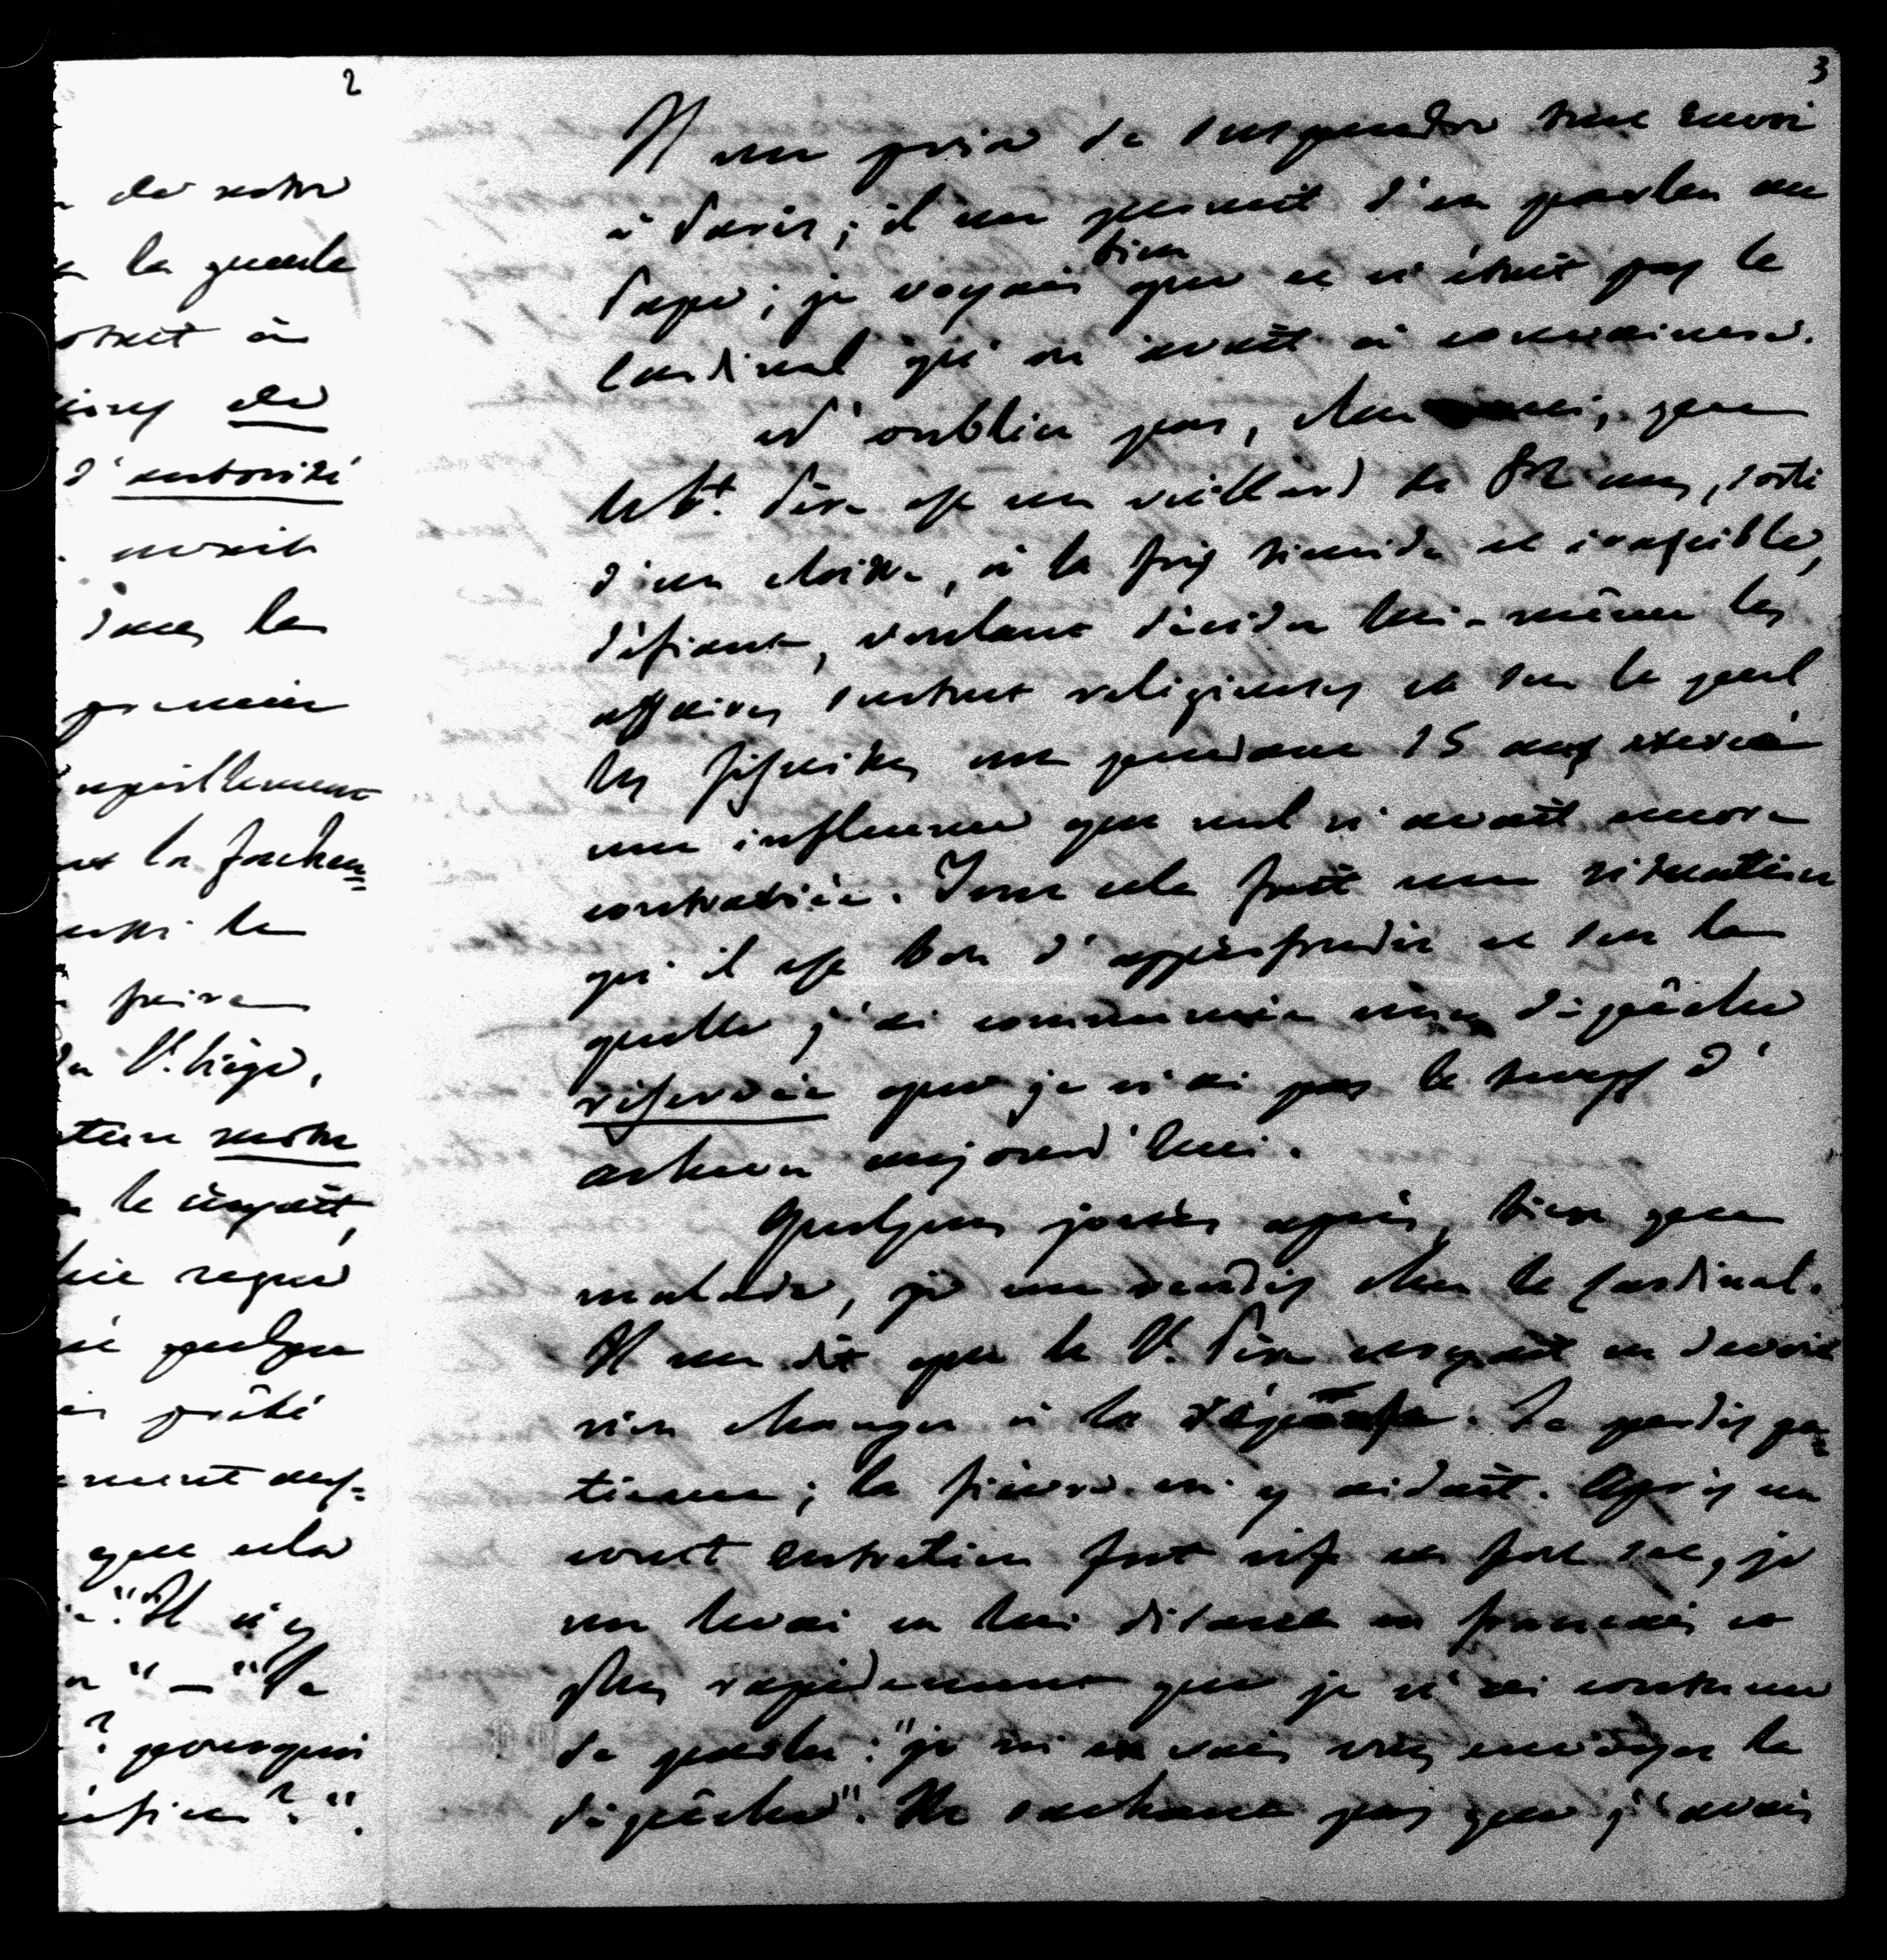 2
de notre
la guerre
à
de
d'autorité
dans la
premier
la fusion
la
faire
du St. Siège,
notre
le croyait,
quelque
prêté
que cela
"Il n'y
" — "Va
? pourquoi
? ".
3
Il me pria de suspendre tout envoi
à Paris; il me promit d'en parler au
Pape; je voyais bien que ce n'était pas le
Cardinal qu'on avait à convaincre.
N'oubliez pas, cher ami, que
le St. Père est un vieillard de 82 ans, sorti
d'un cloître, à la fois timide et irascible,
défiant, voulant décider lui-même les
affaires surtout religieuses et sur lequel
les Jésuites ont pendant 15 ans exercé
une influence que nul n'avait encore
contrariée. Tout cela fait une situation
qu'il est bon d'approfondir et sur la
quelle j'ai commencé une dépêche
réservée que je n'ai pas le temps d'
achever aujourd'hui.
Quelques jours après, bien que
malade, je me rendis chez le Cardinal.
Il me dit que le St. Père croyait ne devoir
rien changer à la réponse. Je perdis pa=
tience; la fièvre m'y aidait. Après un
court entretien fort vif et fort sec, je
me levai en lui disant en français et
plus rapidement que je n'ai coutume
de parler: "je m'en vais vous envoyer la
dépêche". Ne sachant pas que j'avais